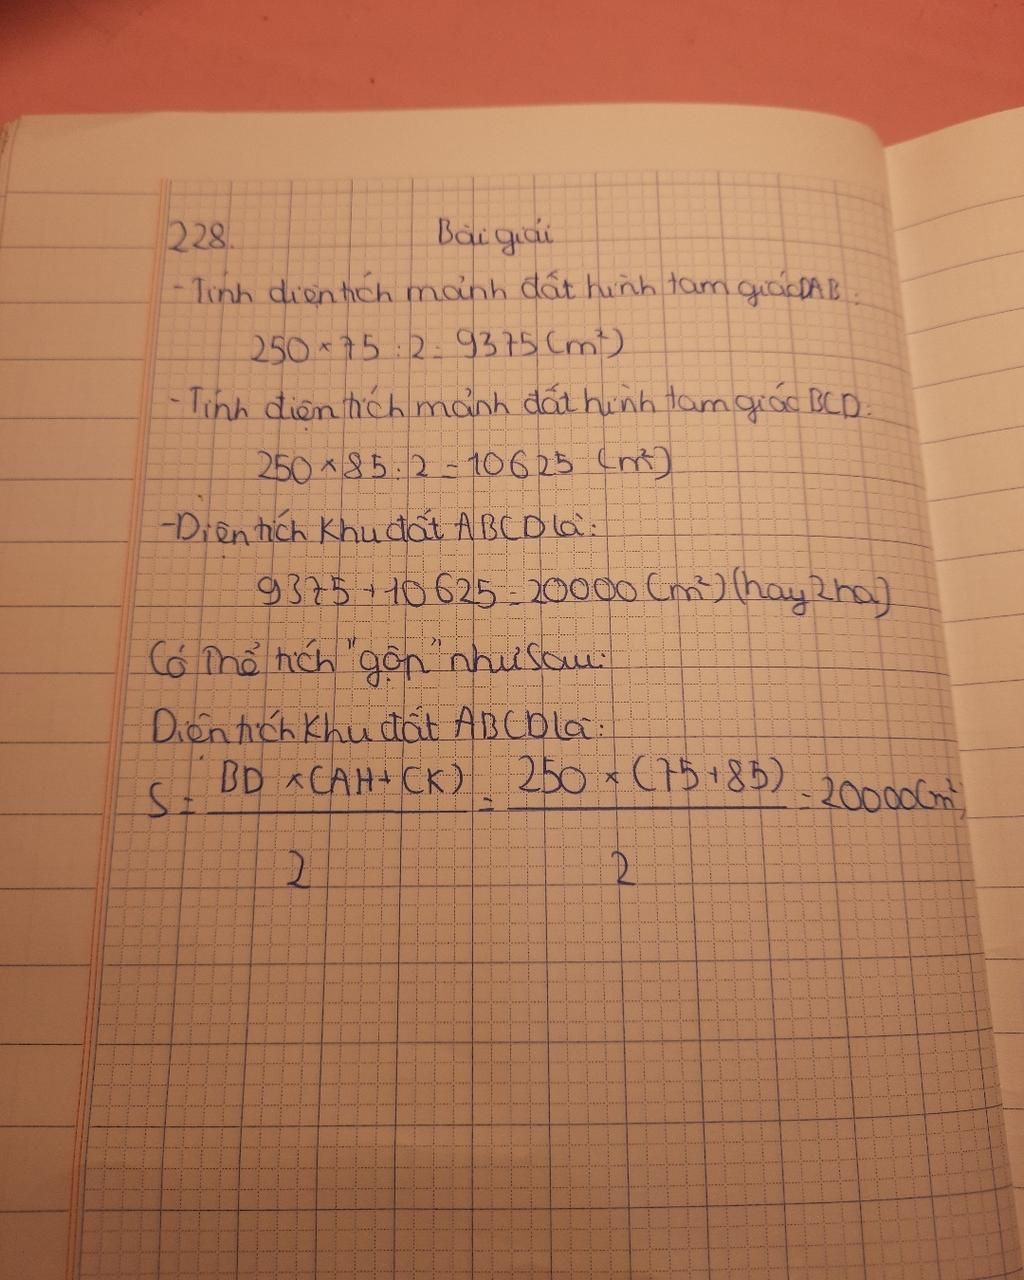 228. Bài giải
- Tính diện tích mảnh đất hình tam giác DAB:
250 × 75 : 2 = 9375 (m²)
- Tính diện tích mảnh đất hình tam giác BCD:
250 × 85 : 2 = 10625 (m²)
- Diện tích khu đất ABCD là:
9375 + 10625 = 20000 (m²) (hay 2 ha)
Có thể tích "gộp" như sau:
Diện tích khu đất ABCD là:
S = BD × (AH + CK) / 2 = 250 × (75 + 85) / 2 = 20000 (m²)